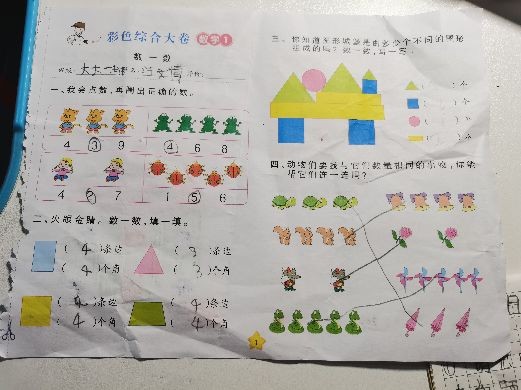 彩色综合大卷 数学1
数一数
一、我会点数,再圈出正确的数。
4 3 9
4 6 8
4 2 7
1 5 6
二、火眼金睛。数一数,填一填。
(4)条边
(3)条边
(4)个角
(3)个角
(4)条边
(4)条边
(4)个角
(4)个角
三、你知道图形城堡是由多少个不同的图形
组成的吗?数一数,写一写。
( )个
( )个
( )个
( )个
四、动物们要找与它们数量相同的
帮它们连一连吗?
1